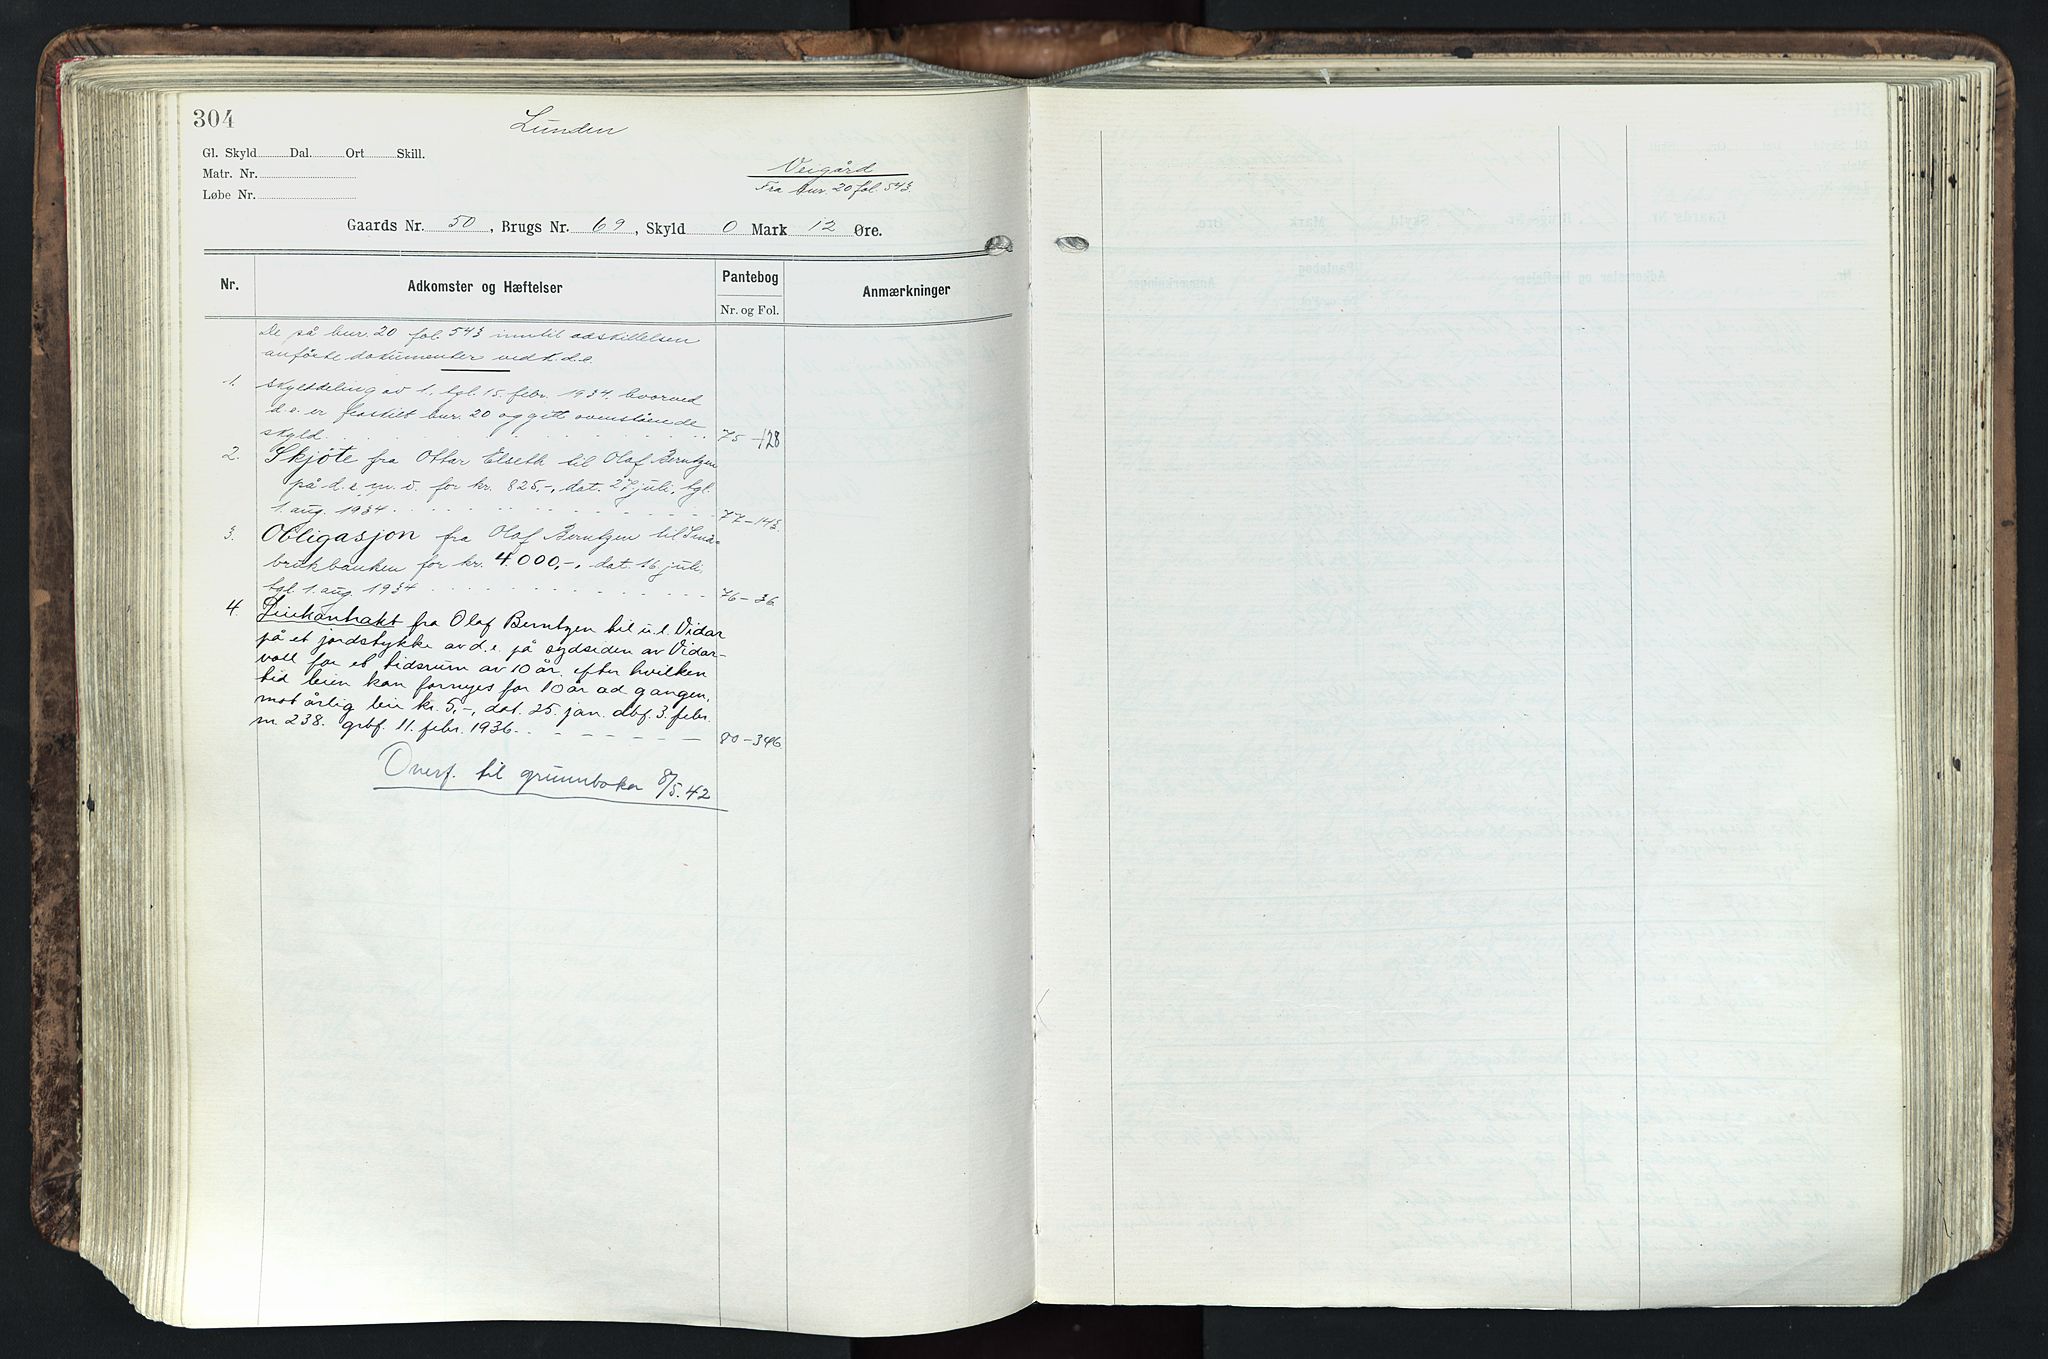 304
Lunden
Gl. Skyld Dal. Ort Skill.
Matr. Nr.
Løbe Nr.
Veigård
Fra bnr. 20 fol. 543.
Gaards Nr. 50, Brugs Nr. 69, Skyld 0 Mark 12 Øre.
Nr. Adkomster og Hæftelser Pantebog Anmærkninger
Nr. og Fol.
De på bnr. 20 fol. 543 inntil adskillelsen
anförte dokumenter vedk. d.e.
1. Skylddeling av 1., tgl. 15. febr. 1934, hvorved
d.e. er fraskilt bnr. 20 og gitt ovenstående
skyld 75 - 128
2. Skjöte fra Ottar Elseth til Olaf Berntzen
på d.e. m.v. for kr. 825,-, dat. 27. juli, tgl.
1. aug. 1934 77 - 143.
3. Obligasjon fra Olaf Berntzen til Små-
brukbanken for kr. 4.000,-, dat. 16. juli,
tgl. 1. aug. 1934 76 - 36
4. Leiekontrakt fra Olaf Berntzen til u.l. Vidar
på et jordstykke av d.e. på sydsiden av Vidar-
voll for et tidsrum av 10 år, efter hvilken
tid leien kan fornyes for 10 år ad gangen,
mot årlig leie kr. 5,-, dat. 25. jan. dbf. 3. febr.
nr 238. grbf. 11. febr. 1936. 80 - 346
Overf. til grunnboka 8/5.42